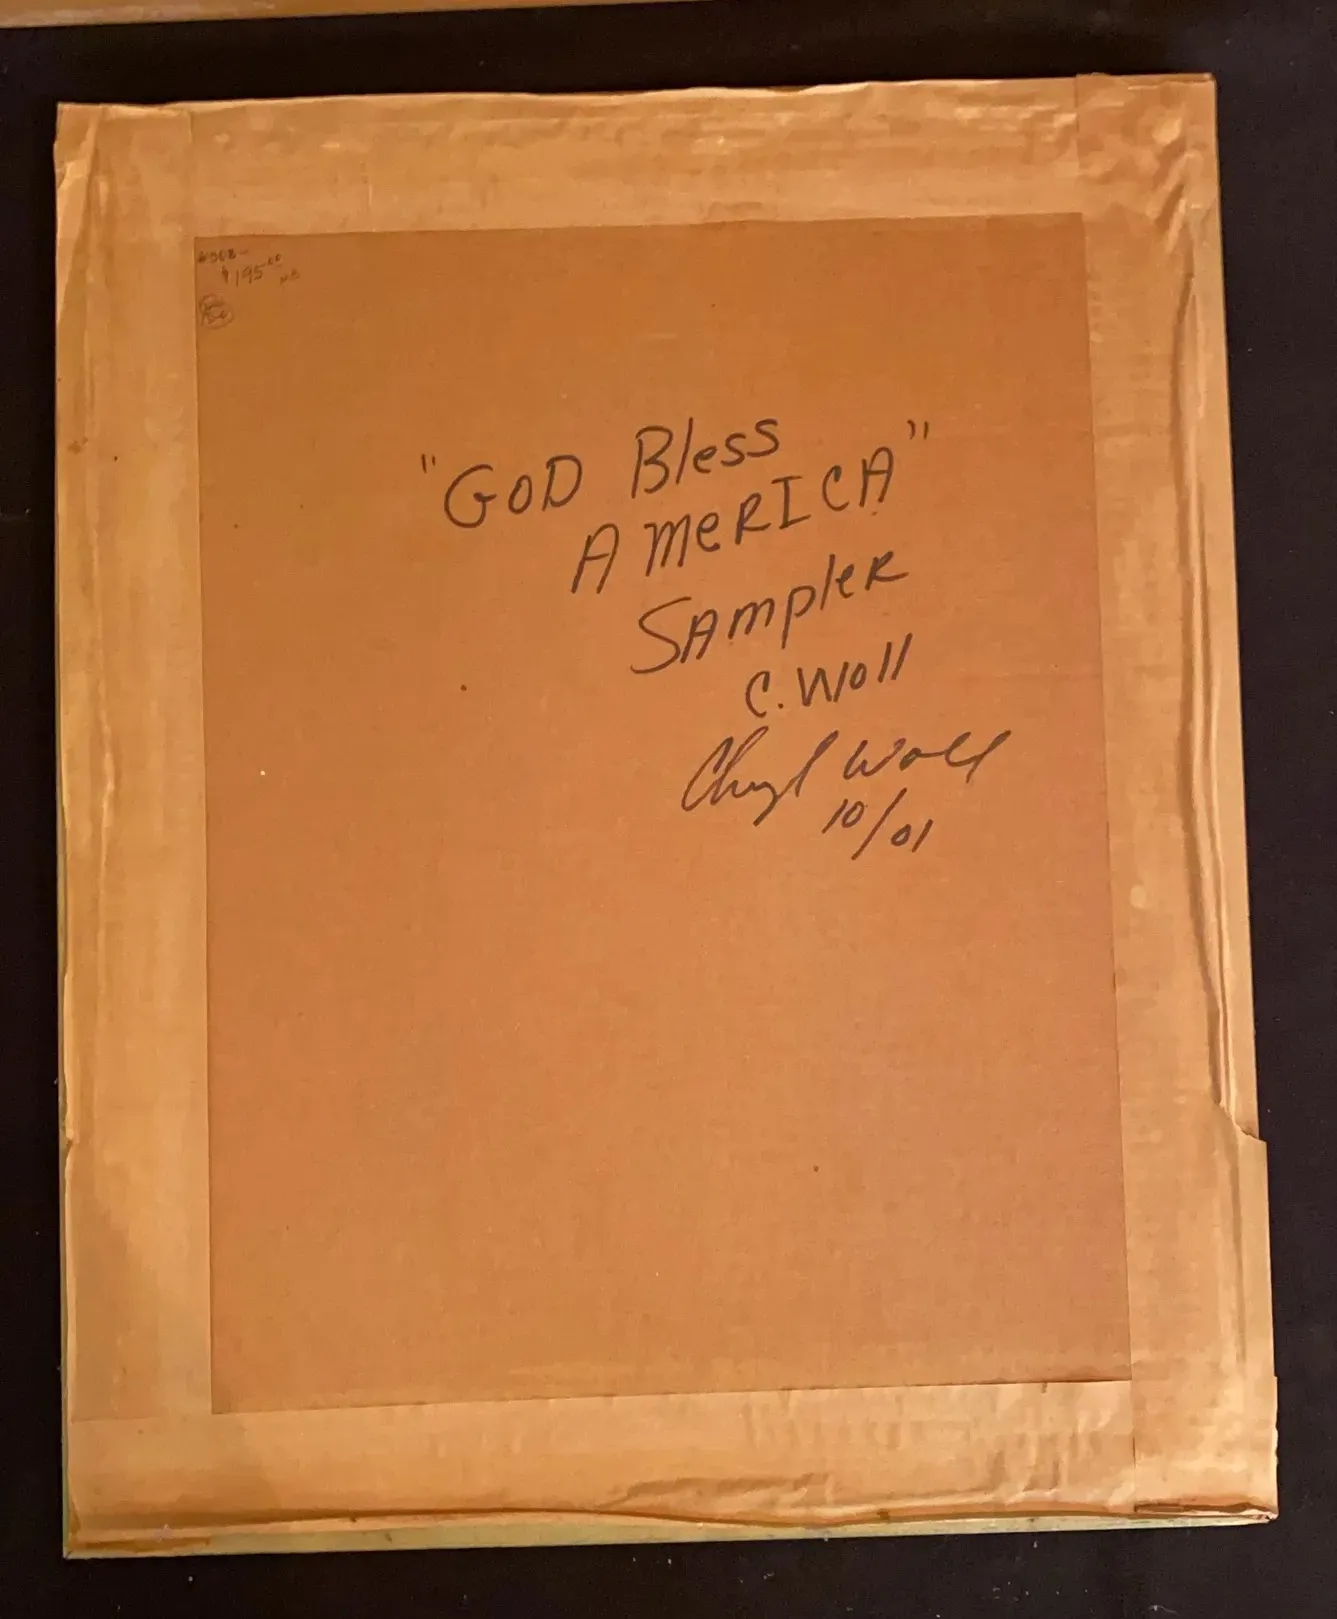 $195.00
"GOD Bless
AMeRICA"
SAmpleR
C. Woll
Cheryl Woll
10/01